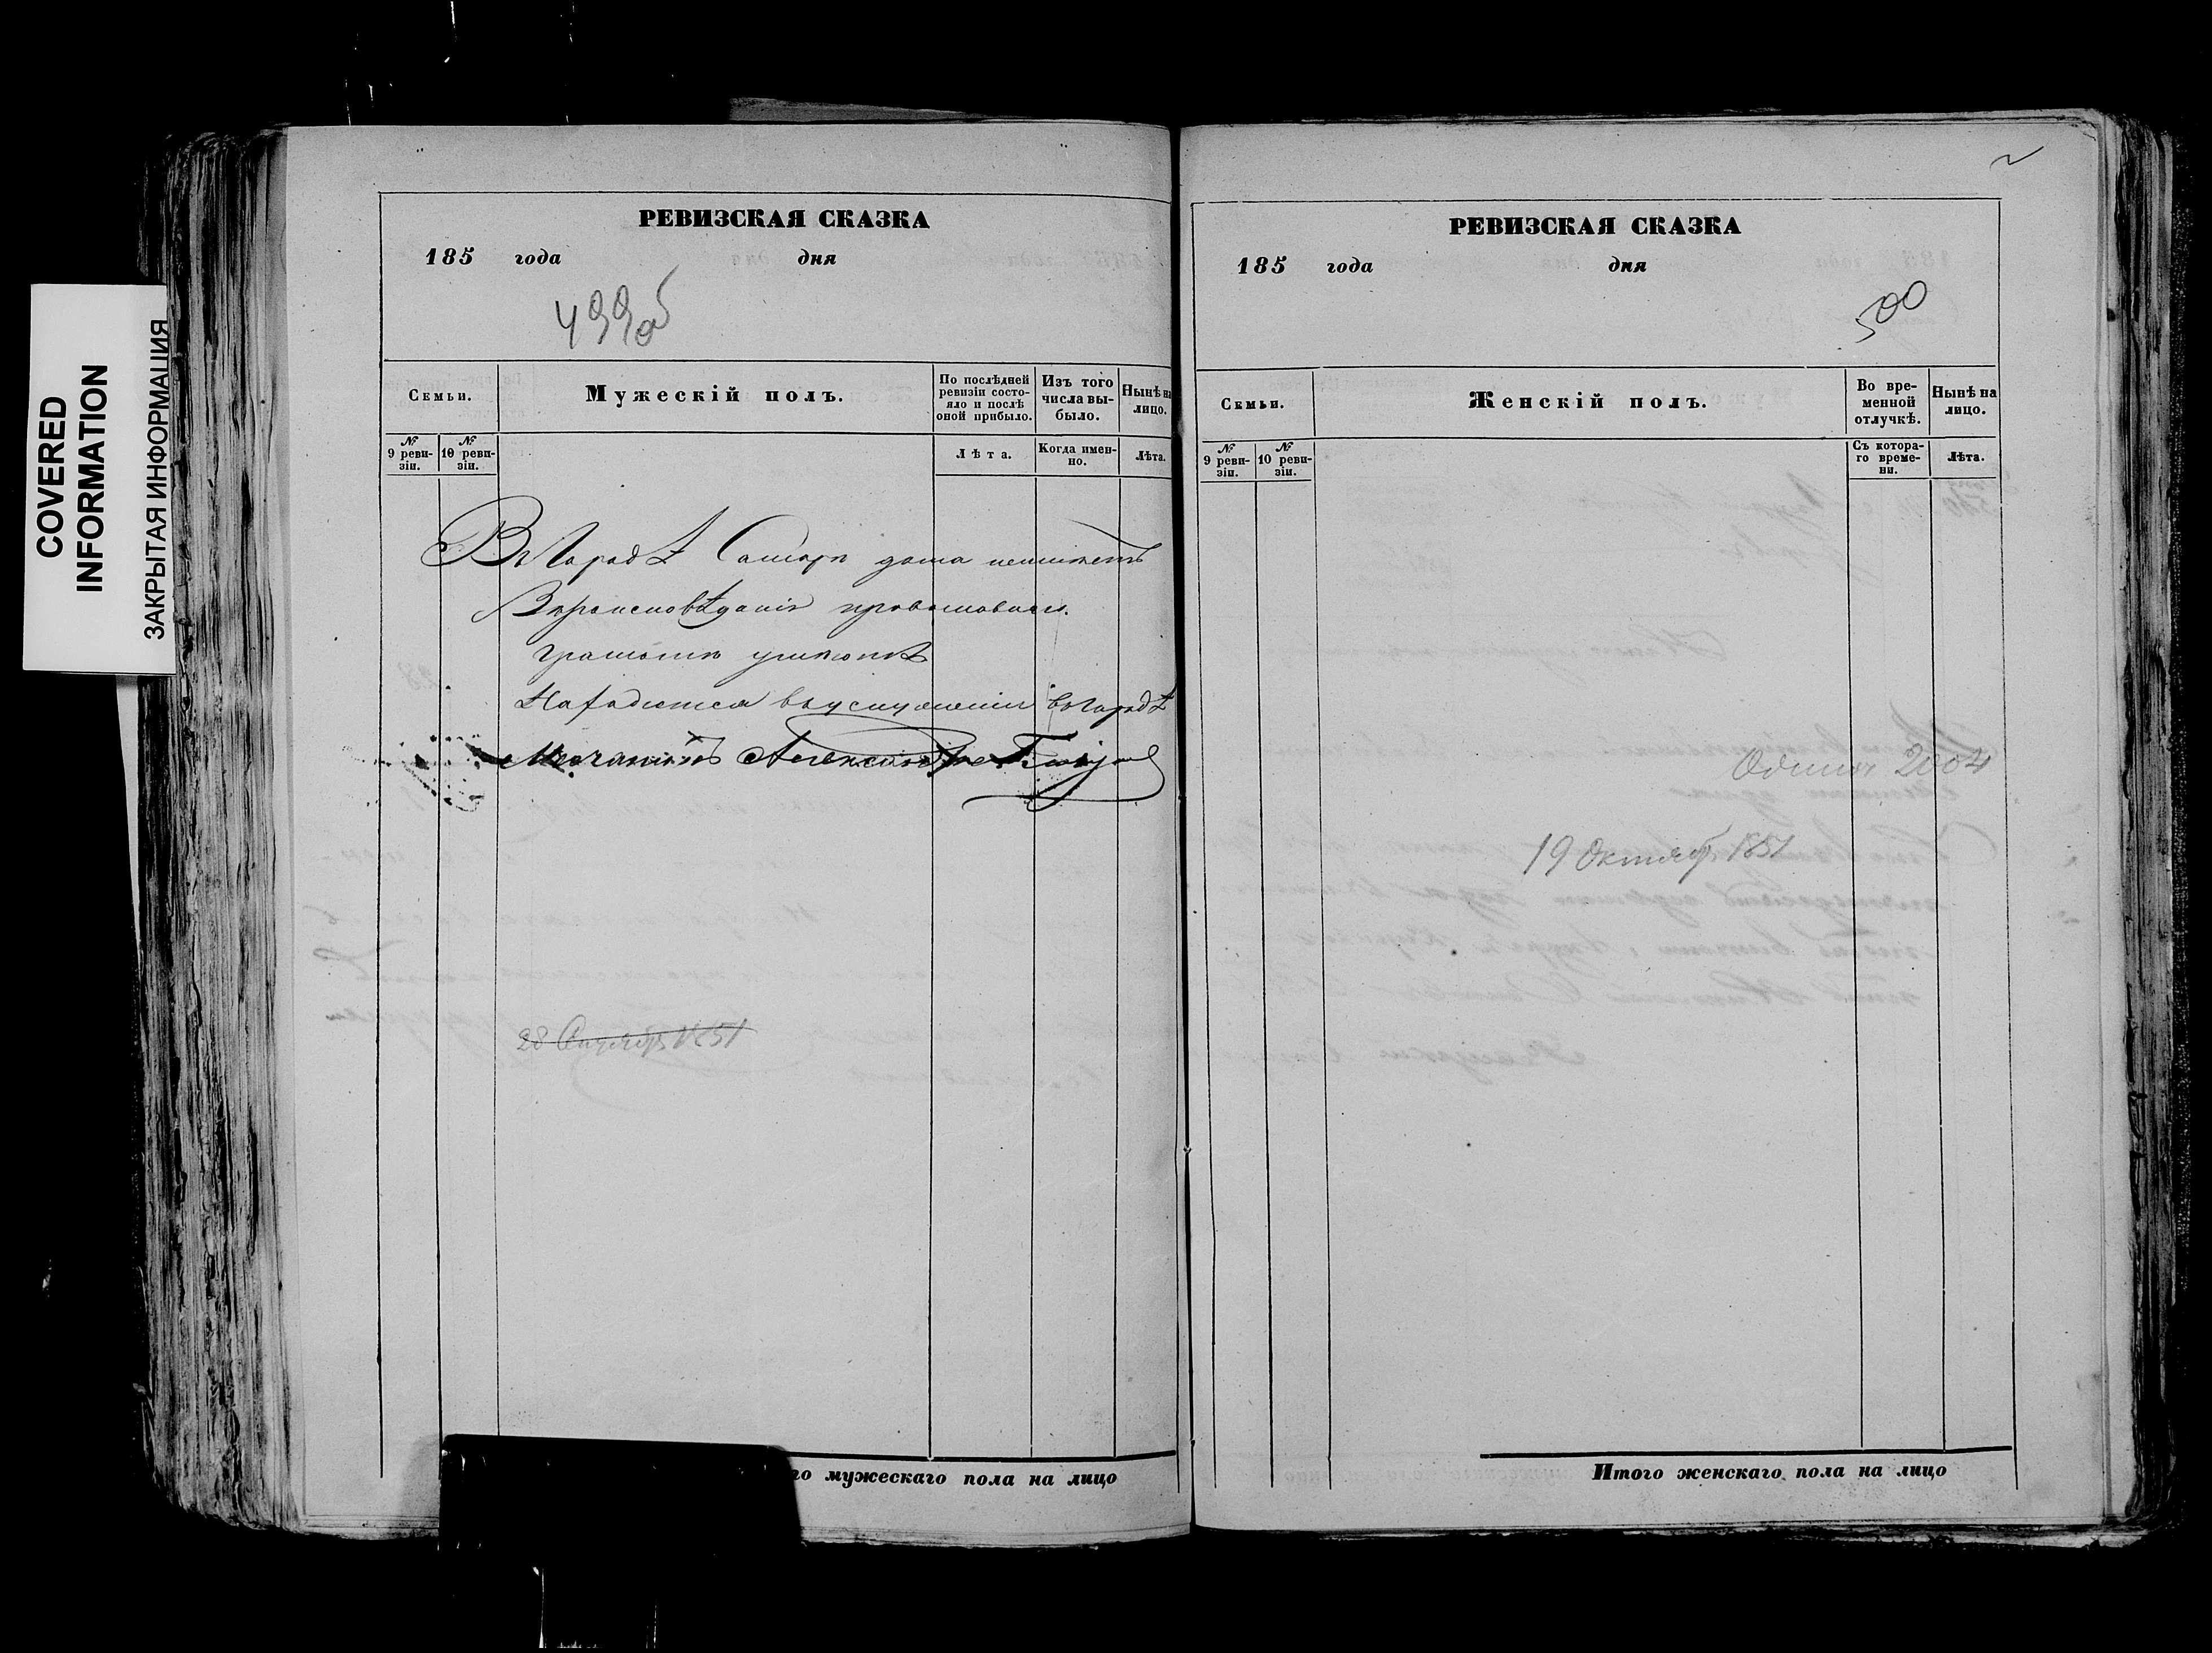 COVERED
INFORMATION
ЗАКРЫТАЯ ИНФОРМАЦИЯ
РЕВИЗСКАЯ СКАЗКА
185 года дня
499об
Семьи.
Мужескій полъ.
По послѣдней ревизіи состояло и послѣ оной прибыло.
Изъ того числа выбыло.
Нынѣ на лицо.
№ 9 ревизіи.
№ 10 ревизіи.
Лѣта.
Когда именно.
Лѣта.
Въ Городѣ Самаре дома неимеетъ
Вероисповѣданія православнаго
грамоте
Находится въ услуженіи въ Городѣ
Мещанинъ Александръ
28 1851
го мужескаго пола на лицо
РЕВИЗСКАЯ СКАЗКА
185 года дня
500
Семьи.
Женскій полъ.
Во временной отлучкѣ.
Нынѣ на лицо.
№ 9 ревизіи.
№ 10 ревизіи.
Съ котораго времени.
Лѣта.
2004
19 Октябр 1851
Итого женскаго пола на лицо